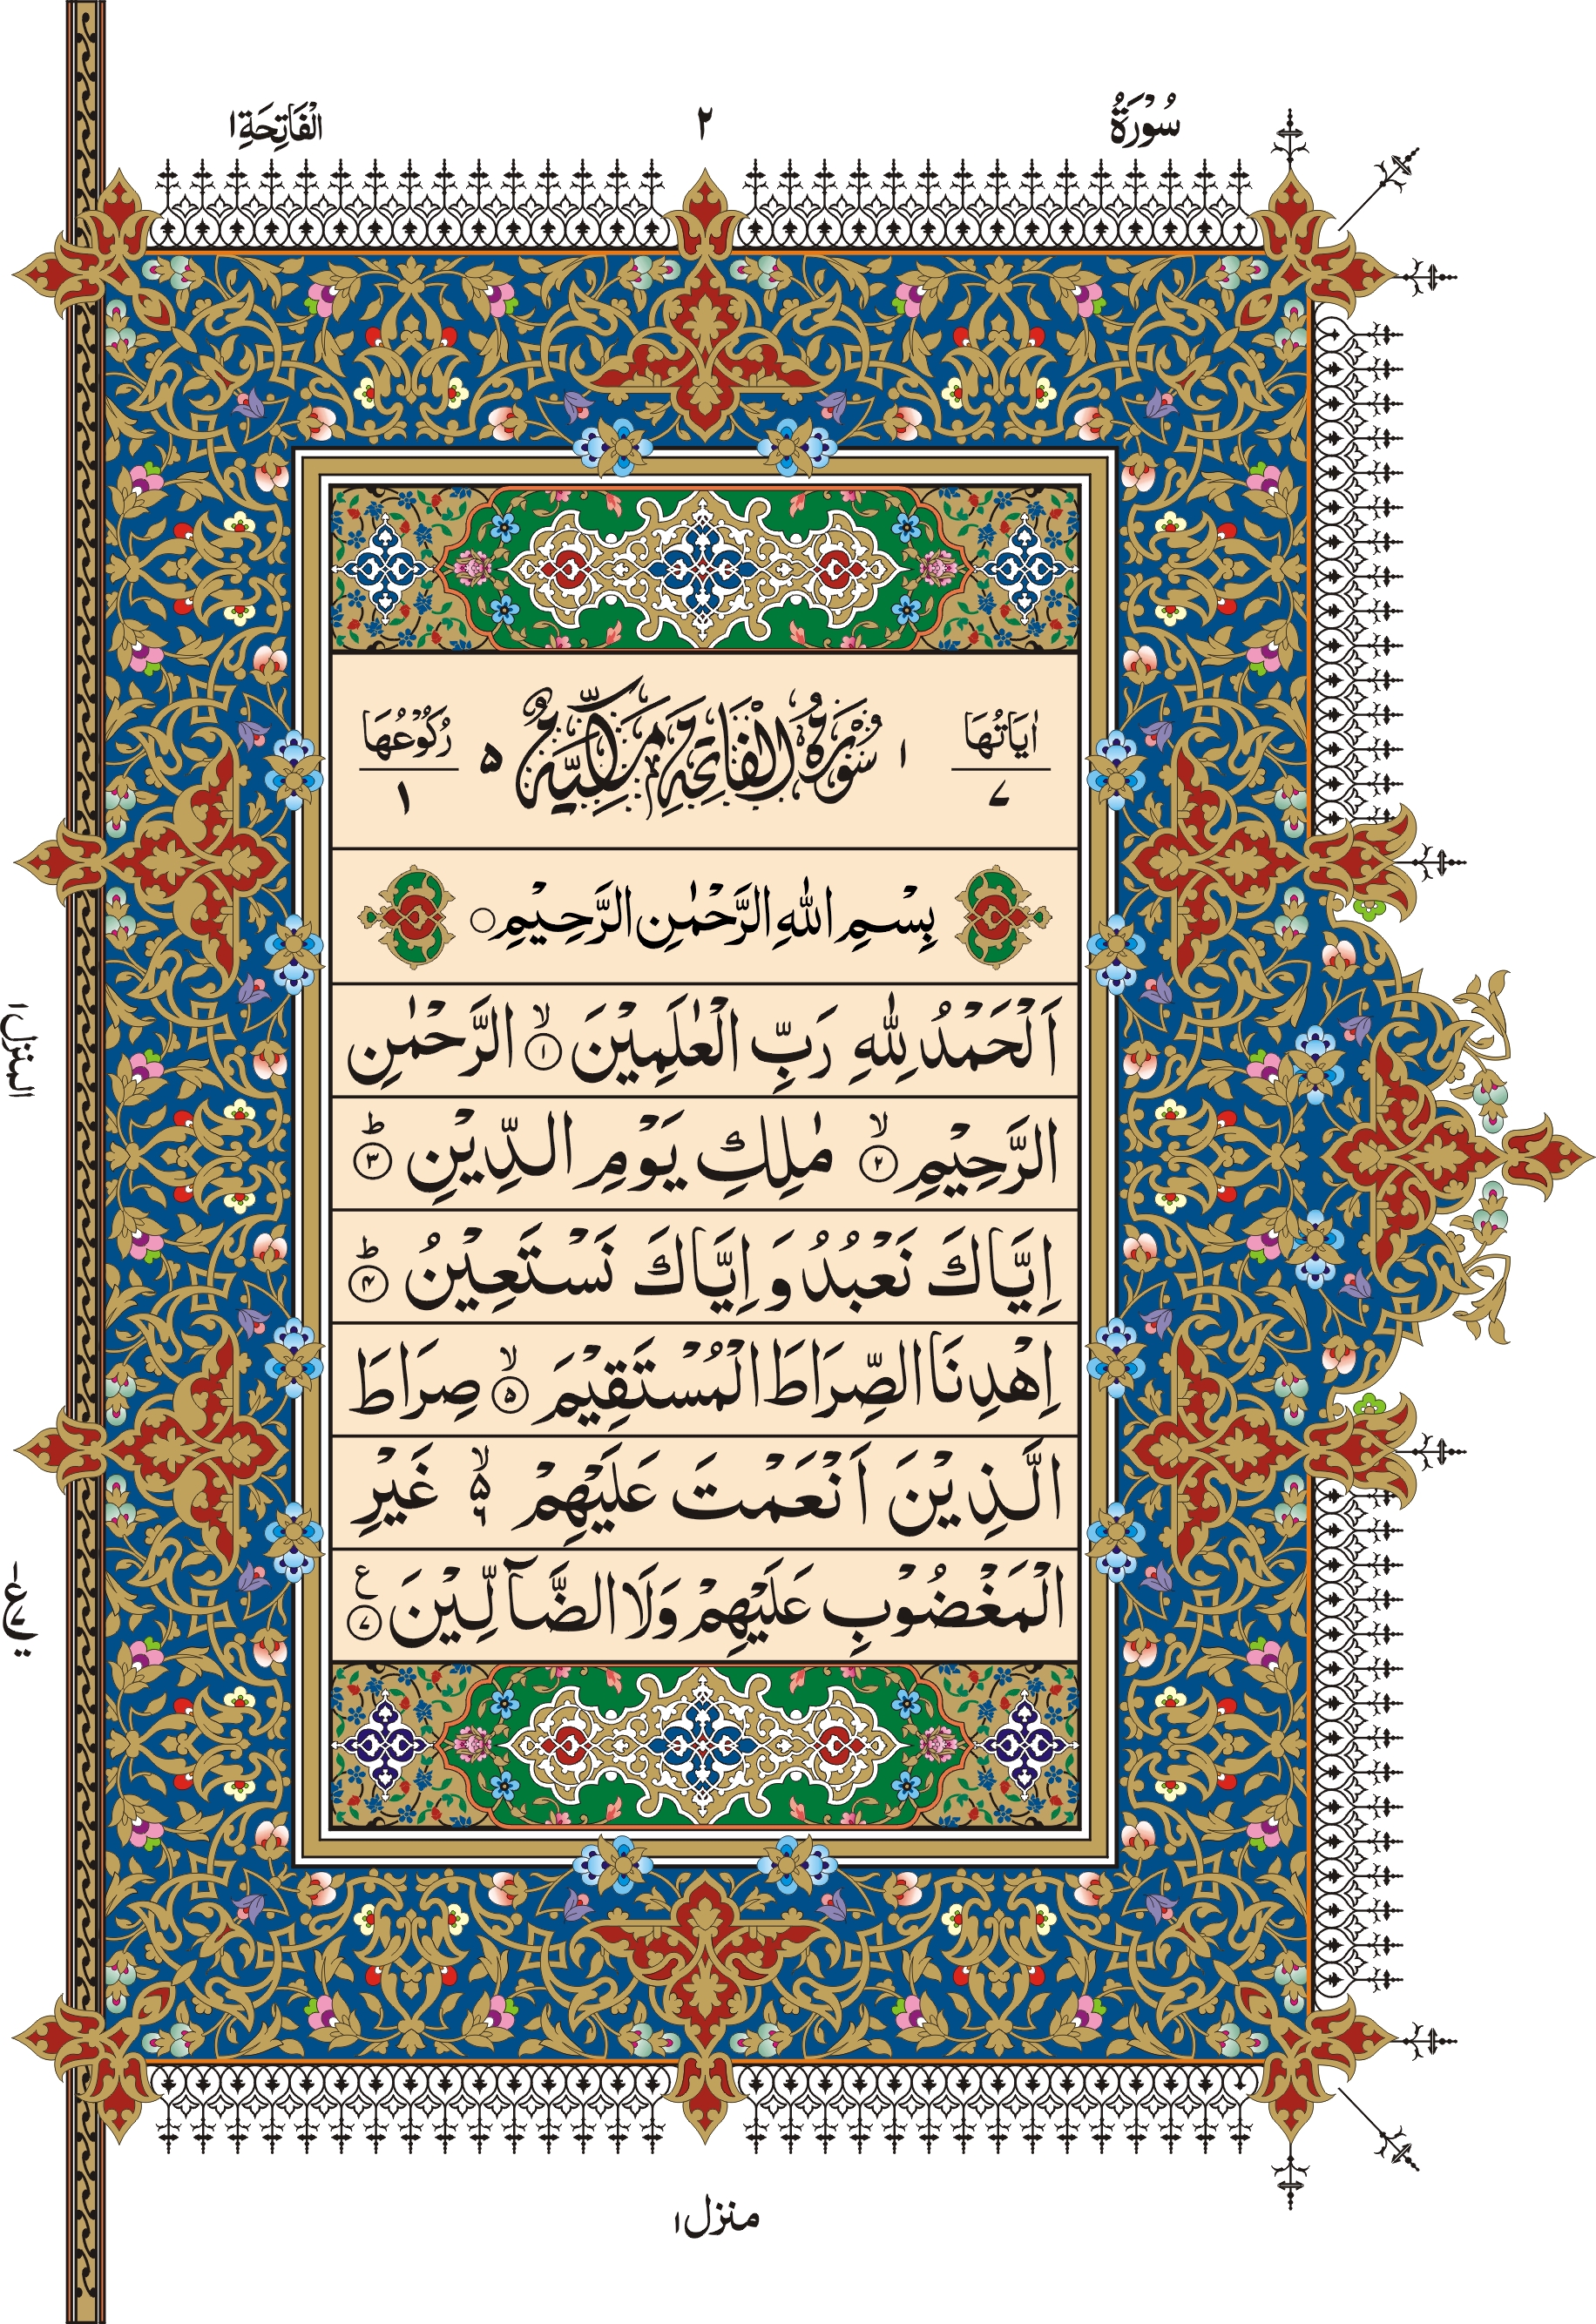 سُوْرَةُ ٢ الْفَاتِحَةِ ١
اٰيَاتُهَا ٧ ١ سُوْرَةُ الْفَاتِحَةِ مَكِّيَّةٌ ۵ رُكُوْعُهَا ١
بِسْمِ اللّٰهِ الرَّحْمٰنِ الرَّحِيْمِ ○
اَلْحَمْدُ لِلّٰهِ رَبِّ الْعٰلَمِيْنَ ۙ﴿١﴾ الرَّحْمٰنِ
الرَّحِيْمِ ۙ﴿٢﴾ مٰلِكِ يَوْمِ الدِّيْنِ ؕ﴿٣﴾
اِيَّاكَ نَعْبُدُ وَ اِيَّاكَ نَسْتَعِيْنُ ؕ﴿۴﴾
اِهْدِنَا الصِّرَاطَ الْمُسْتَقِيْمَ ۙ﴿۵﴾ صِرَاطَ
الَّذِيْنَ اَنْعَمْتَ عَلَيْهِمْ ۙ۵ ٦ غَيْرِ
الْمَغْضُوْبِ عَلَيْهِمْ وَلَا الضَّآلِّيْنَ ع﴿٧﴾
المنزل ١
منزل ١